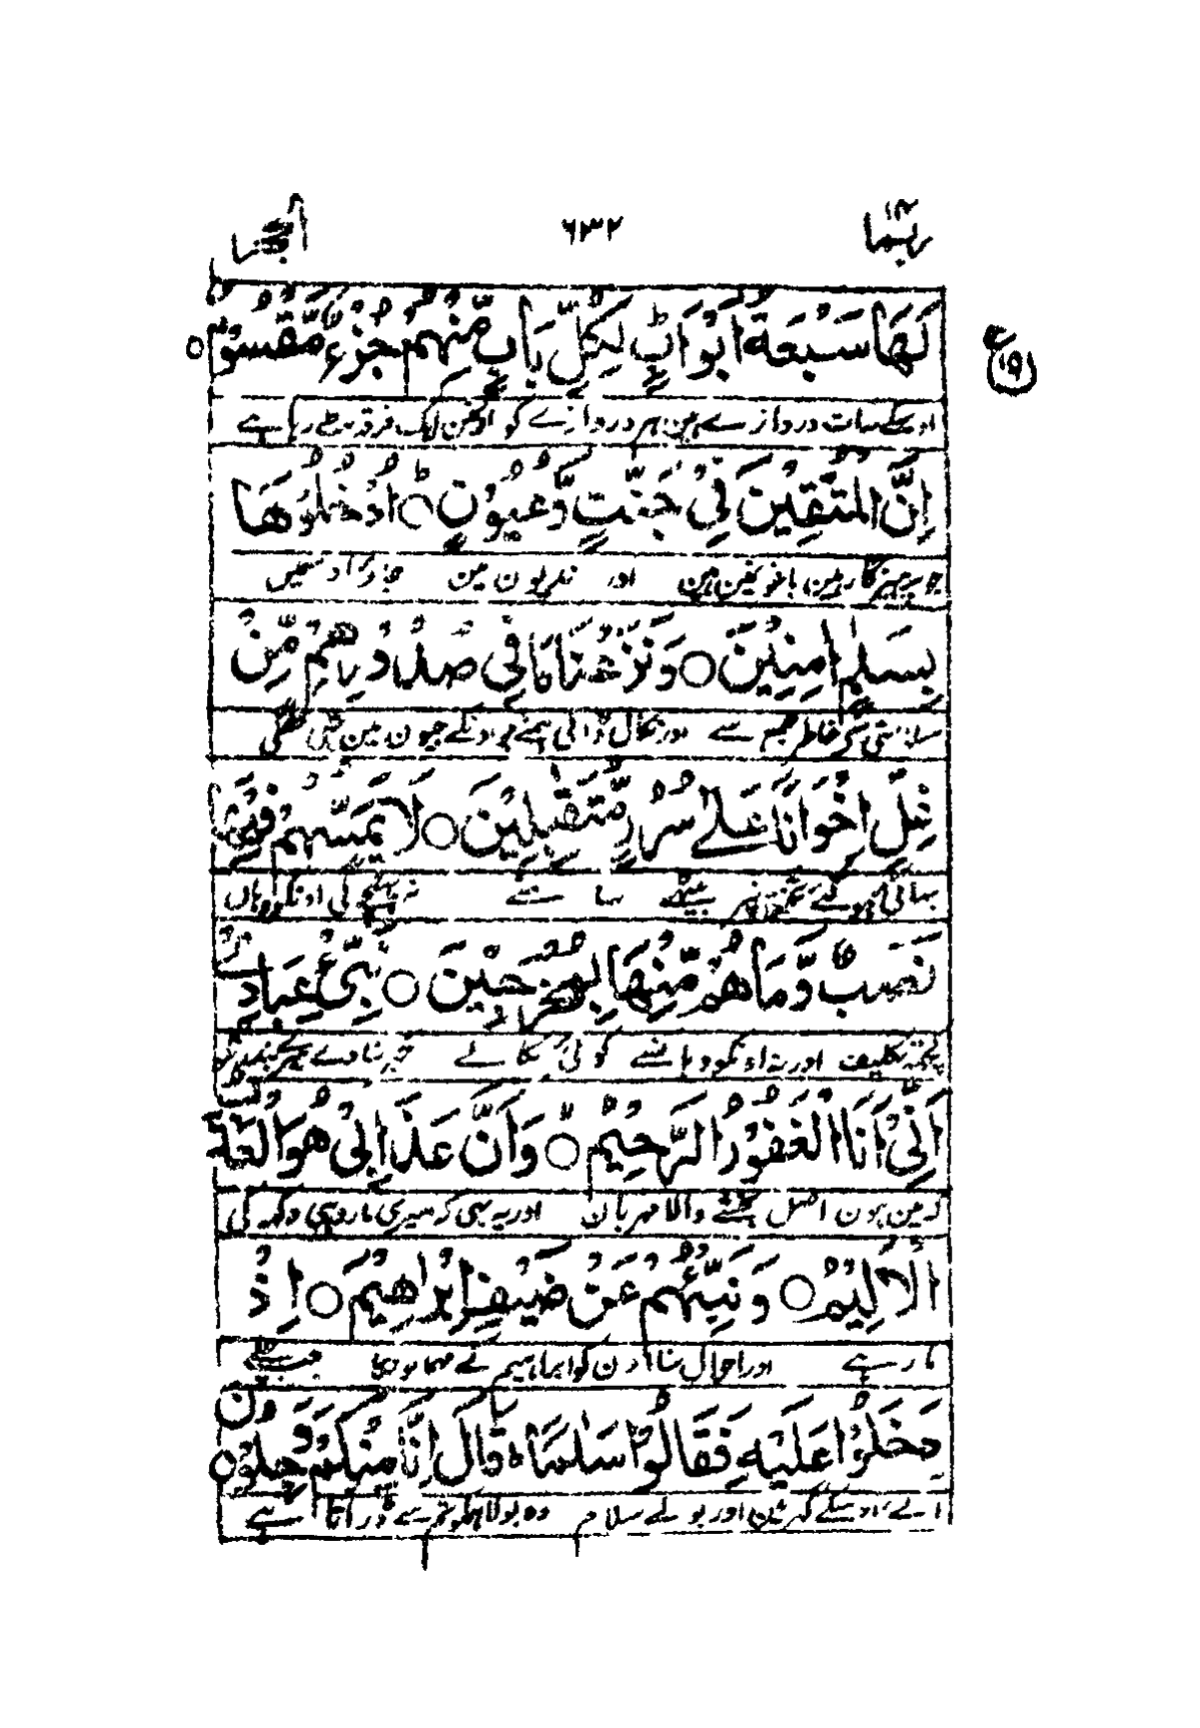 ربما ١٤ ٦٣٢ الحجر
لَهَا سَبْعَةُ اَبْوَابٍ لِكُلِّ بَابٍ مِّنْهُمْ جُزْءٌ مَّقْسُوْمٌ ○
ع ١٩
اوسکے سات دروازے ہین ہر دروازے کو اونمین ایک فرقہ بٹ رہا ہے
اِنَّ الْمُتَّقِيْنَ فِيْ جَنّٰتٍ وَّعُيُوْنٍ ○ اُدْخُلُوْهَا
جو پرہیزگار ہین باغونمین ہین اور ندیون مین جاؤ
بِسَلٰمٍ اٰمِنِيْنَ ○ وَنَزَعْنَا مَا فِيْ صُدُوْرِهِمْ مِّنْ
سلامتی سے خاطر جمع سے اور نکال ڈالی ہمنے جو اونکے جیون مین تھی خفگی
غِلٍّ اِخْوَانًا عَلٰى سُرُرٍ مُّتَقٰبِلِيْنَ ○ لَا يَمَسُّهُمْ فِيْهَا
بہائی ہوگئے تختون پر بیٹھے سامنے نہ پہنچیگی اونکو وہان
نَصَبٌ وَّمَا هُمْ مِّنْهَا بِمُخْرَجِيْنَ ○ نَبِّئْ عِبَادِيْ
کچھ تکلیف اور نہ اونکو وہانسے کوئی نکالے خبر سنادے میرے بندونکو
اَنِّيْ اَنَا الْغَفُوْرُ الرَّحِيْمُ ○ وَاَنَّ عَذَابِيْ هُوَ الْعَذَابُ
کہ مین ہون اصل بخشنے والا مہربان اور یہ بہی کہ میری مار وہی دکہ کی
الْاَلِيْمُ ○ وَنَبِّئْهُمْ عَنْ ضَيْفِ اِبْرَاهِيْمَ ○ اِذْ
مار ہے اور احوال سنا اون کو ابراہیم کے مہمانونکا جب
دَخَلُوْا عَلَيْهِ فَقَالُوْا سَلٰمًا ؕ قَالَ اِنَّا مِنْكُمْ وَجِلُوْنَ ○
آئے اوسکے گہر مین اور بولے سلام وہ بولا ہمکو تمسے ڈر آتا ہے